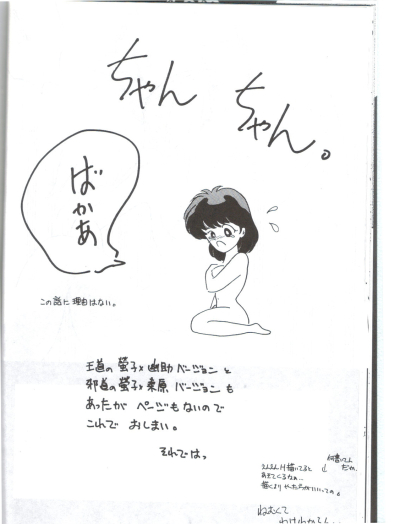 ちゃん
ちゃん。
ばかあ
この話に理由はない。
王道の螢子×幽助バージョンと
邪道の螢子×桑原バージョンも
あったが ページもないので
これで おしまい。
それではっ
何書いてん
だか。
あきてくるなぁ…
ねむくて
わけわかてん。